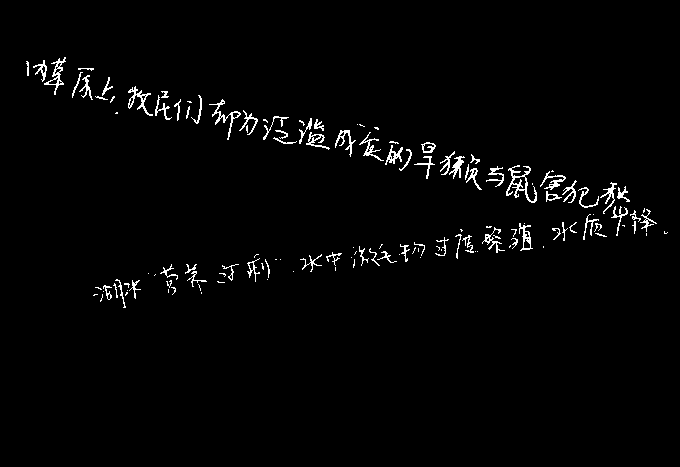 的草原上，牧民们却为泛滥成灾的旱獭与鼠害犯愁
湖水“营养过剩”，水中微生物过度繁殖，水质下降，